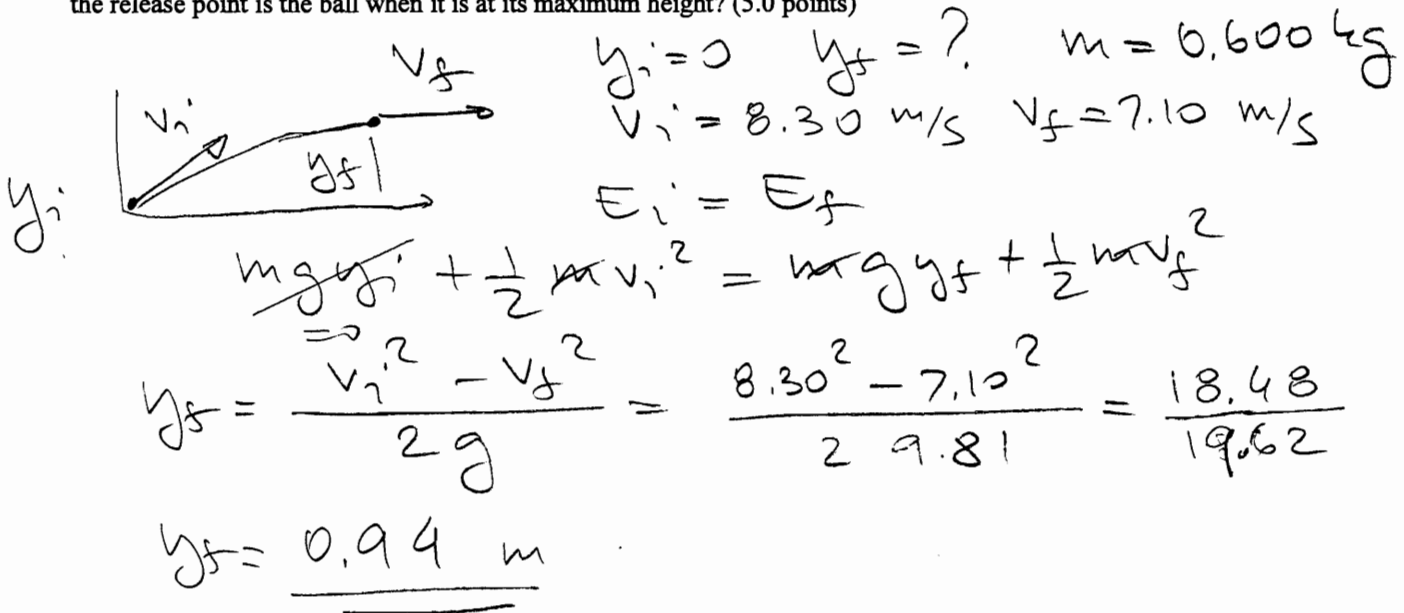 the release point is the ball when it is at its maximum height? (5.0 points)
yi = 0 yf = ? m = 0,600 kg
vi = 8.30 m/s vf = 7.10 m/s
vf
vi
yf
yi
Ei = Ef
mgyi + 1/2 mvi² = mgyf + 1/2 mvf²
=0
yf = (vi² - vf²) / 2g = (8.30² - 7,10²) / 2 9.81 = 18.48 / 19.62
yf = 0,94 m